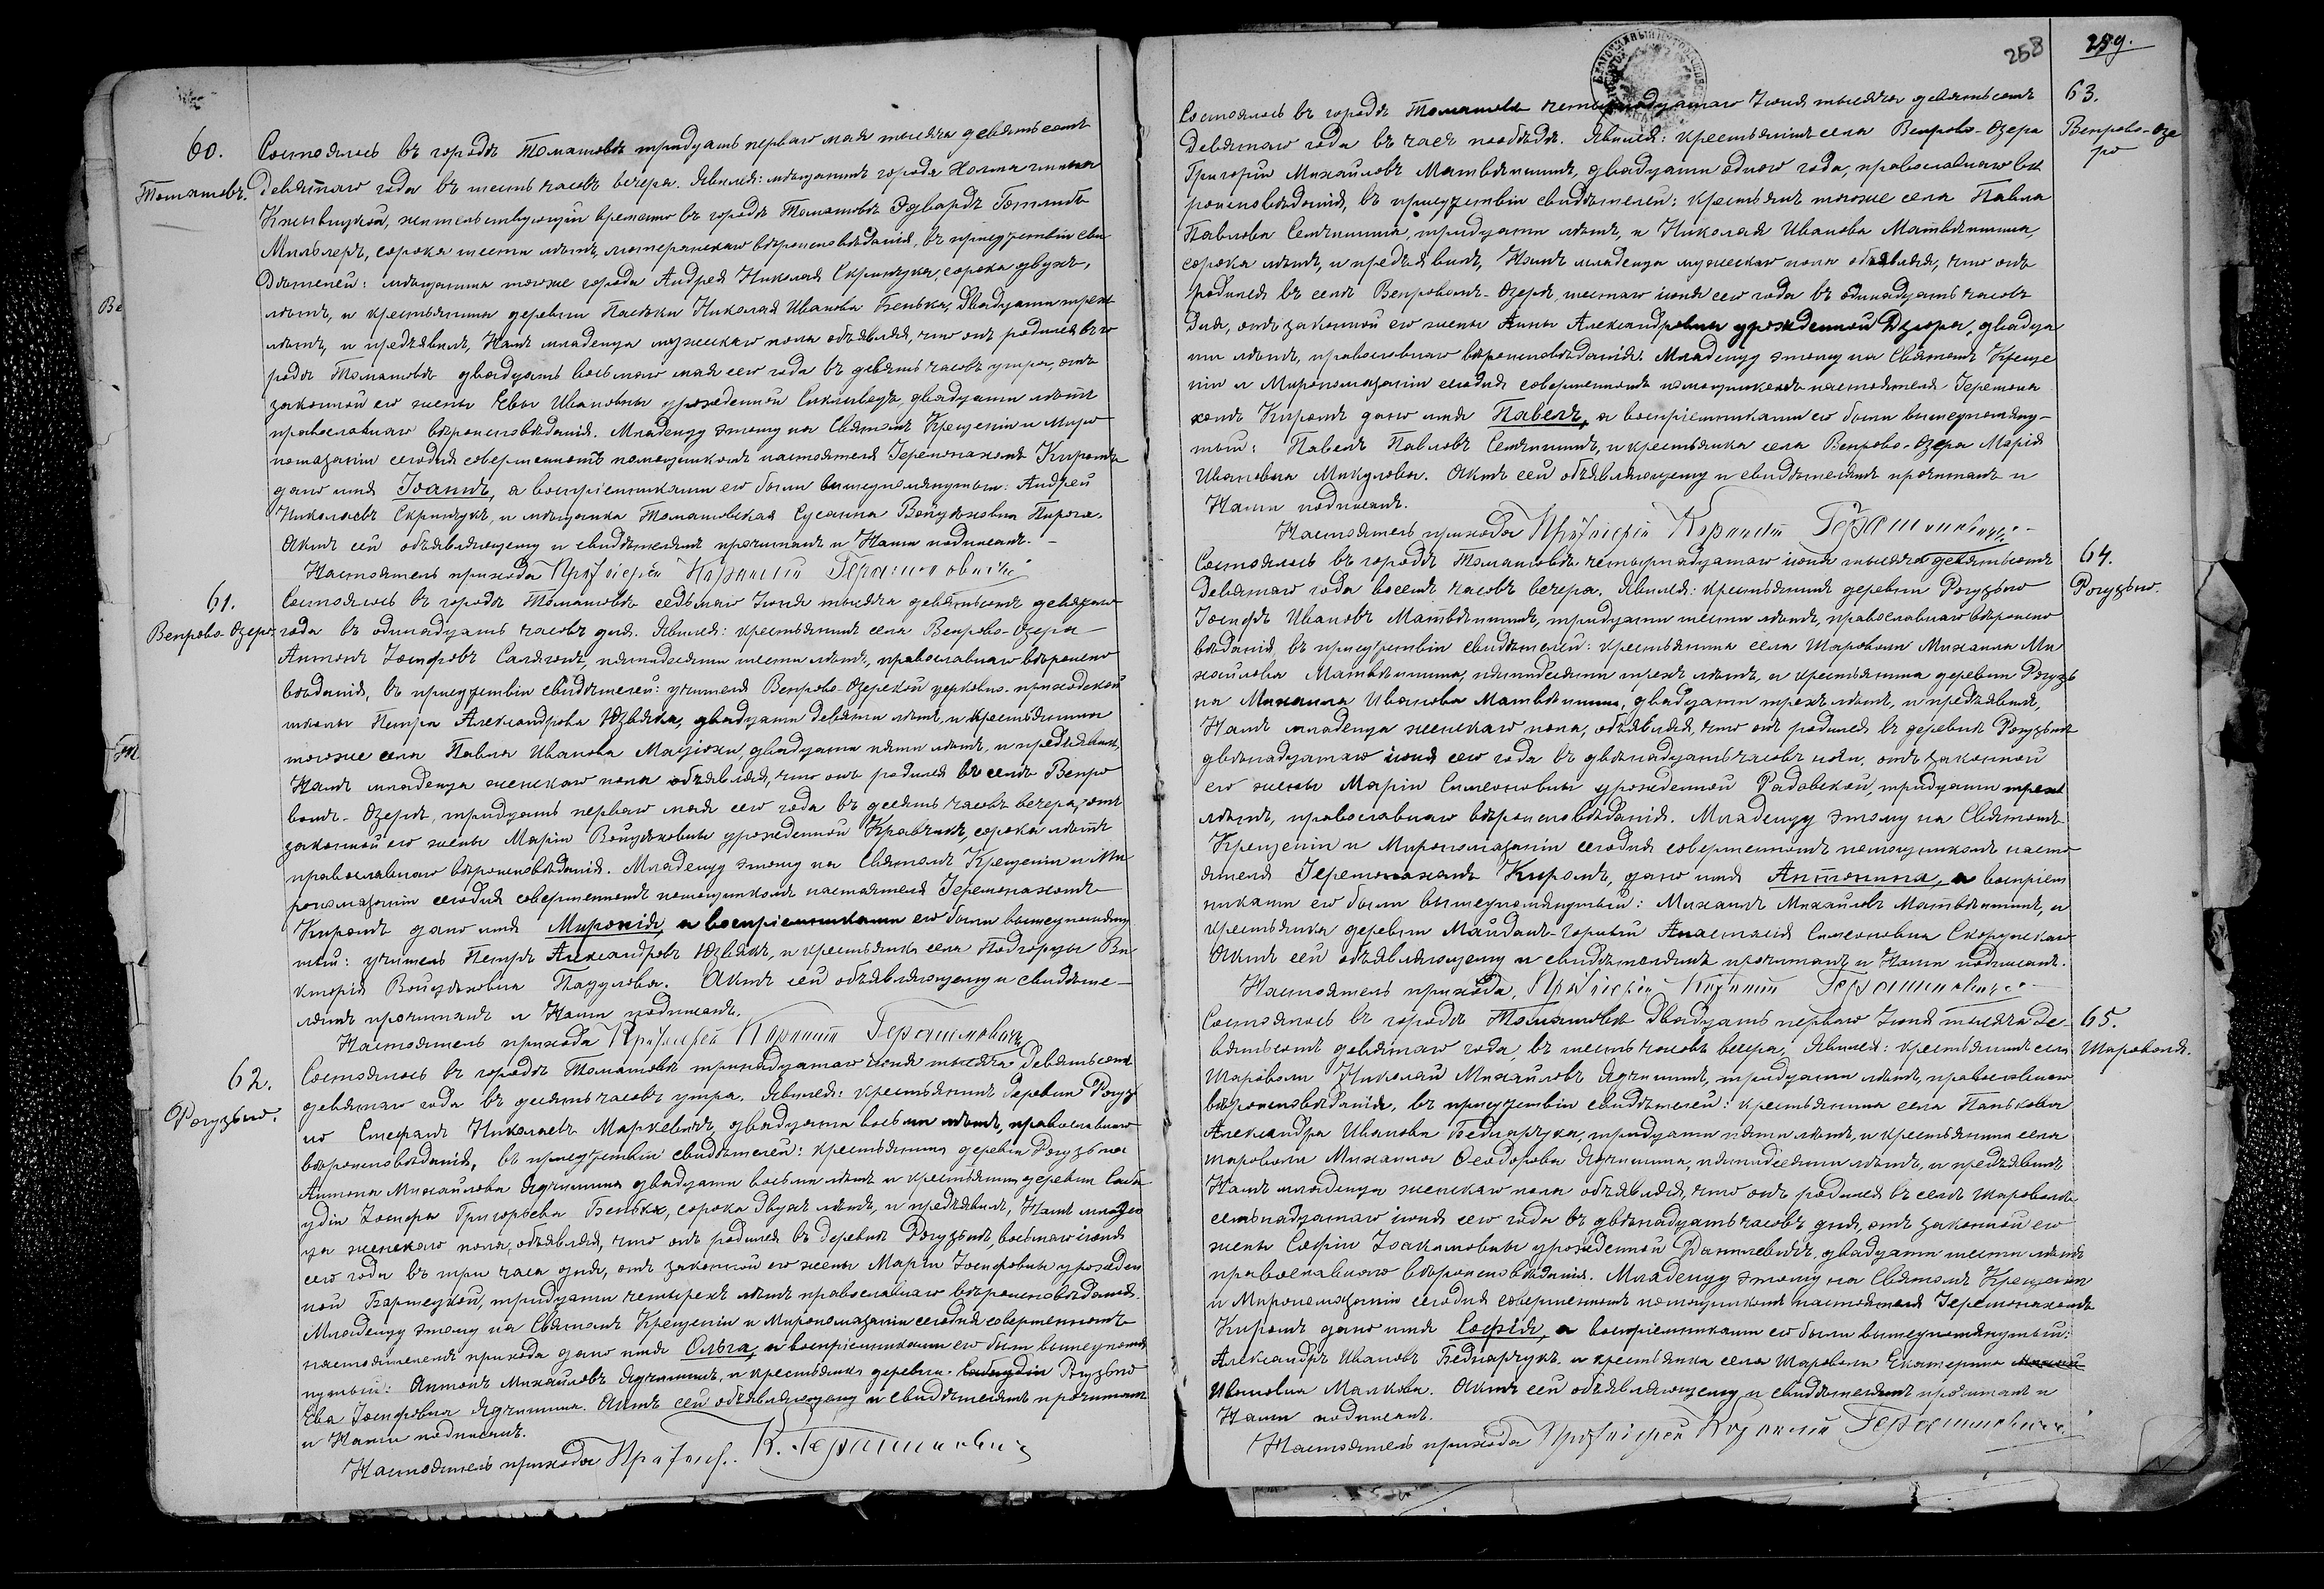 60.
Томашовъ.
Состоялось въ городѣ Томашовѣ тридцать перваго мая тысяча девятьсотъ
девятаго года въ шесть часовъ вечера. Явился: мѣщанинъ города Холма
жительствующій временно въ городѣ Томашовѣ Эдвардъ Готлибъ
Мильлеръ, сорока шести лѣтъ, лютеранскаго вѣроисповѣданія, въ присутствіи сви-
дѣтелей: мѣщанина тогоже города Андрея Николая Скринчука, сорока двухъ,
лѣтъ, и крестьянина деревни Пасѣки Николая Иванова Бенька, двадцати трехъ
лѣтъ, и предъявилъ, Намъ младенца мужескаго пола объявляя, что онъ родился въ го
родѣ Томашовѣ двадцать восьмаго мая сего года въ девять часовъ утра, отъ
законной его жены Евы Ивановны урожденной двадцати лѣтъ
православнаго вѣроисповѣданія. Младенцу этому на Святомъ Крещеніи и Миро
помазаніи сегодня совершенномъ помощникомъ настоятеля Іеромонахомъ Кирономъ
дано имя Іоаннъ, а воспріемниками его были вышеупомянутые: Андрей
Николаевъ Скринчукъ, и мѣщанка Томашовская Сусанна Войцѣховна Пирога.
Актъ сей объявляющему и свидѣтелямъ прочитанъ и Нами подписанъ. –
Настоятель прихода Протоіерей Корнилій Герасимовичъ
61.
Вепрово-Озеро.
Состоялось въ городѣ Томашовѣ седьмаго Іюня тысяча девятьсотъ девятаго
года въ одинадцать часовъ дня. Явился: крестьянинъ села Вепрово-Озера
Антонъ Іосифовъ Салягонъ, пятидесяти шести лѣтъ, православнаго вѣроиспо
вѣданія, въ присутствіи свидѣтелей: учителя Вепрово-Озерской церковно-приходской
школы Петра Александрова Юзвяка, двадцати девяти лѣтъ, и крестьянина
тогоже села Павла Иванова Мацюхи, двадцати пяти лѣтъ, и предъявилъ,
Намъ младенца женскаго пола объявляя, что онъ родился въ селѣ Вепро
вомъ-Озерѣ, тридцать перваго мая сего года въ десять часовъ вечера, отъ
законной его жены Маріи Войцѣховны урожденной Кравчикъ, сорока лѣтъ
православнаго вѣроисповѣданія. Младенцу этому на Святомъ Крещеніи и Ми
ропомазаніи сегодня совершенномъ помощникомъ настоятеля Іеромонахомъ
Кирономъ дано имя Миронія, а воспріемниками его были вышеупомяну
тый: учитель Петръ Александровъ Юзвякъ, и крестьянка села Подгорцы Ви
кторія Войцѣховна Пацулова. Актъ сей объявляющему и свидѣте-
лямъ прочитанъ и Нами подписанъ.
Настоятель прихода Протоіерей Корнилій Герасимовичъ
62.
Рогузьно.
Состоялось въ городѣ Томашовѣ тринадцатаго Іюня тысяча девятьсотъ
девятаго года въ десять часовъ утра. Явился: крестьянинъ деревни Рогузь
но Стефанъ Николаевъ Маркевичъ, двадцати восьми лѣтъ, православнаго
вѣроисповѣданія, въ присутствіи свидѣтелей: крестьянина деревни Рогузьна
Антона Михайлова Ядчишина двадцати восьми лѣтъ и крестьянина деревни Сабa
удіи Іосифа Григорьева Бенька, сорока двухъ лѣтъ, и предъявилъ, Намъ младен
ца женскаго пола, объявляя, что онъ родился въ деревнѣ Рогузьнѣ, восьмаго іюня
сего года въ три часа дня, отъ законной его жены Маріи Іосифовны урожден
ной Бартецкой, тридцати четырехъ лѣтъ православнаго вѣроисповѣданія.
Младенцу этому на Святомъ Крещеніи и Миропомазаніи сегодня совершенномъ
настоятелемъ прихода дано имя Ольга, а воспріемниками его были вышеупомя
нутый: Антонъ Михайловъ Ядчишинъ, и крестьянка деревни Рогузьно
Ева Іосифовна Ядчишина. Актъ сей объявляющему и свидѣтелямъ прочитанъ
и Нами подписанъ.
Настоятель прихода Протоіер. К. Герасимовичъ
258
259.
63.
Вепрово-Озе
ро
Состоялось въ городѣ Томашовѣ четырнадцатаго Іюня тысяча девятьсотъ
девятаго года въ часъ пообѣдѣ. Явился: крестьянинъ села Вепрово-Озера
Григорій Михайловъ Матвѣишинъ, двадцати одного года, православнаго вѣ
роисповѣданія, въ присутствіи свидѣтелей: крестьянъ тогоже села Павла
Павлова Семчишина, тридцати лѣтъ, и Николая Иванова Матвѣишина,
сорока лѣтъ, и предъявилъ, Намъ младенца мужескаго пола объявляя, что онъ
родился въ селѣ Вепровомъ-Озерѣ, шестаго іюня сего года въ одинадцать часовъ
дня, отъ законной его жены Анны Александровны урожденной Дзюра, двадца
ти лѣтъ, православнаго вѣроисповѣданія. Младенцу этому на Святомъ Креще
ніи и Миропомазаніи сегодня совершенномъ помощникомъ настоятеля Іеромона
хомъ Кирономъ дано имя Павелъ, а воспріемниками его были вышеупомяну-
тый: Павелъ Павловъ Семчишинъ, и крестьянка села Вепрово-Озера Марія
Ивановна Микулова. Актъ сей объявляющему и свидѣтелямъ прочитанъ и
Нами подписанъ.
Настоятель прихода Протоіерей Корнилій Герасимовичъ
64.
Рогузьно.
Состоялось въ городѣ Томашовѣ четырнадцатаго іюня тысяча девятьсотъ
девятаго года восемь часовъ вечера. Явился: крестьянинъ деревни Рогузьно
Іосифъ Ивановъ Матвѣишинъ, тридцати шести лѣтъ, православнаго вѣроиспо
вѣданія, въ присутствіи свидѣтелей: крестьянина села Шароволи Михаила Ми
хайлова Матвѣишина, пятидесяти трехъ лѣтъ, и крестьянина деревни Рогузь
на Михаила Иванова Матвѣишина, двадцати трехъ лѣтъ, и предъявилъ,
Намъ младенца женскаго пола, объявляя, что онъ родился въ деревнѣ Рогузьнѣ
двѣнадцатаго іюня сего года въ двѣнадцать часовъ ночи, отъ законной
его жены Маріи Симеоновны урожденной Радовской, тридцати трехъ
лѣтъ, православнаго вѣроисповѣданія. Младенцу этому на Святомъ
Крещеніи и Миропомазаніи сегодня совершенномъ помощникомъ насто
ятеля Іеромонахомъ Кирономъ, дано имя Антонина, а воспріем
никами его были вышеупомянутый: Михаилъ Михайловъ Матвѣишинъ, и
крестьянка деревни Майданъ-Горный Анастасія Симеоновна Скорупская
Актъ сей объявляющему и свидѣтелямъ прочитанъ и Нами подписанъ.
Настоятель прихода, Протоіерей Корнилій Герасимовичъ
65.
Шароволя.
Состоялось въ городѣ Томашовѣ двадцать перваго Іюня тысяча де-
вятьсотъ девятаго года, въ шесть часовъ вечера, Явился: крестьянинъ села
Шароволи Николай Михайловъ Ядчишинъ, тридцати лѣтъ, православнаго
вѣроисповѣданія, въ присутствіи свидѣтелей: крестьянина села Панькова
Александра Иванова Беднарчука, тридцати пяти лѣтъ, и крестьянина села
Шароволи Михаила Ѳеодорова Ядчишина, пятидесяти лѣтъ, и предъявилъ
Намъ младенца женскаго пола объявляя, что онъ родился въ селѣ Шароволѣ
семьнадцатаго іюня сего года въ двѣнадцать часовъ дня, отъ законной его
жены Софіи Іоакимовны урожденной Данилевичъ, двадцати шести лѣтъ
православнаго вѣроисповѣданія. Младенцу этому на Святомъ Крещеніи
и Миропомазаніи сегодня совершенномъ помощникомъ настоятеля Іеромонахомъ
Кирономъ дано имя Софія, а воспріемниками его были вышеупомянутый:
Александръ Ивановъ Беднарчукъ и крестьянка села Шароволи Екатерина
Ивановна Малкова. Актъ сей объявляющему и свидѣтелямъ прочитанъ и
Нами подписанъ.
Настоятель прихода Протоіерей Корнилій Герасимовичъ